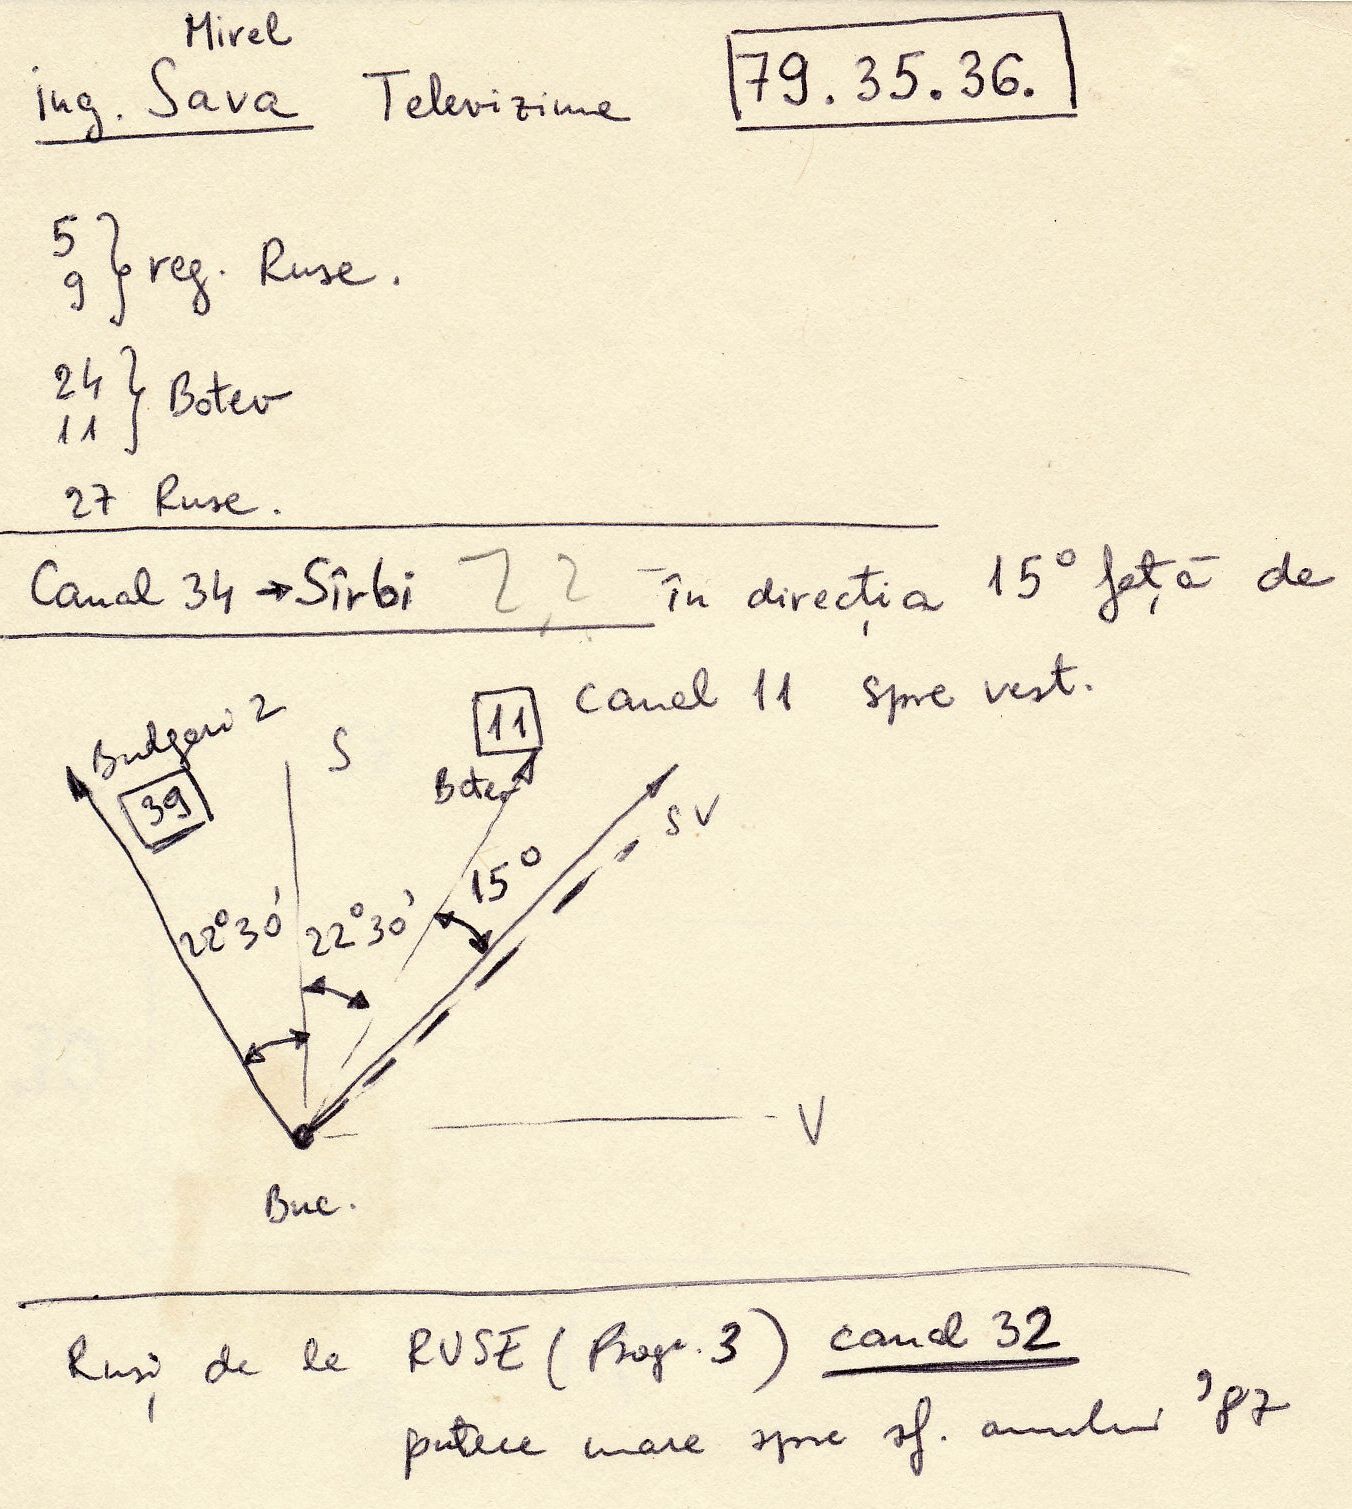 Mirel
ing. Sava Televiziune 79.35.36.
5
9 } reg. Ruse.
24
11 } Botev
27 Ruse.
Canal 34 → Sîrbi ?,? în direcția 15° față de
canal 11 spre vest.
Bulgari 2
39
S
11
Botev
SV
15°
22°30' 22°30'
V
Buc.
Ruși de la RUSE (Progr. 3) canal 32
putere mare spre sf. anului '87